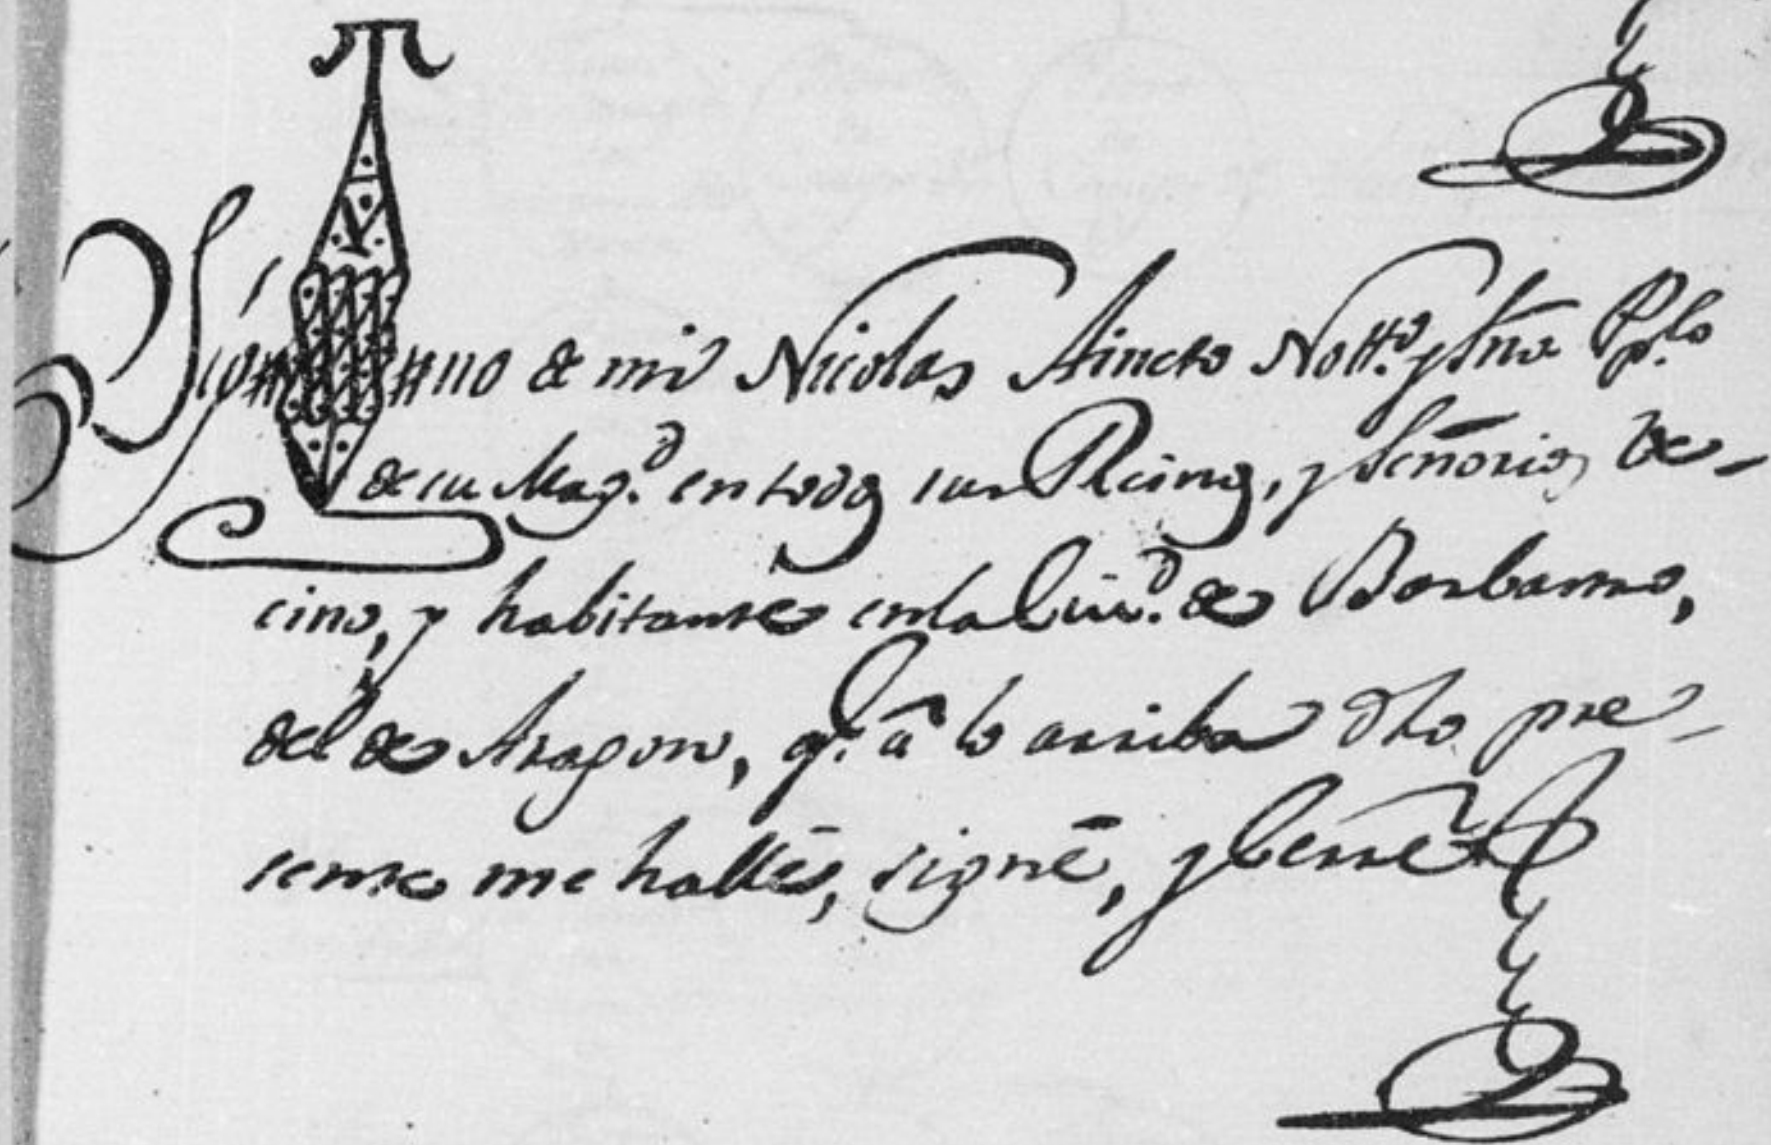 Sig no de mi Nicolas Aineto Nott.º y Srño P.pco
de su Mag.d en todos sus Reinos, y Señorios Ve-
cino, y habitante en la Ciu.d de Barbastro,
del de Aragon, q.e â lo arriba dho pre-
sente me halle, signè, y Cerrè